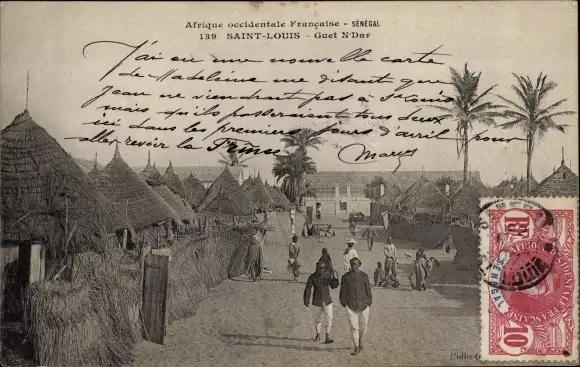 Afrique occidentale Française - SÉNÉGAL
139 SAINT-LOUIS - Guet N'Dar
J'ai eu une nouvelle carte
de Madeleine me disant que
Jean ne viendrait pas à St Louis
mais qu'ils passeraient tous deux
ici dans les premiers jours d'avril pour
aller revoir la France.
SÉNÉGAL
10
Collect